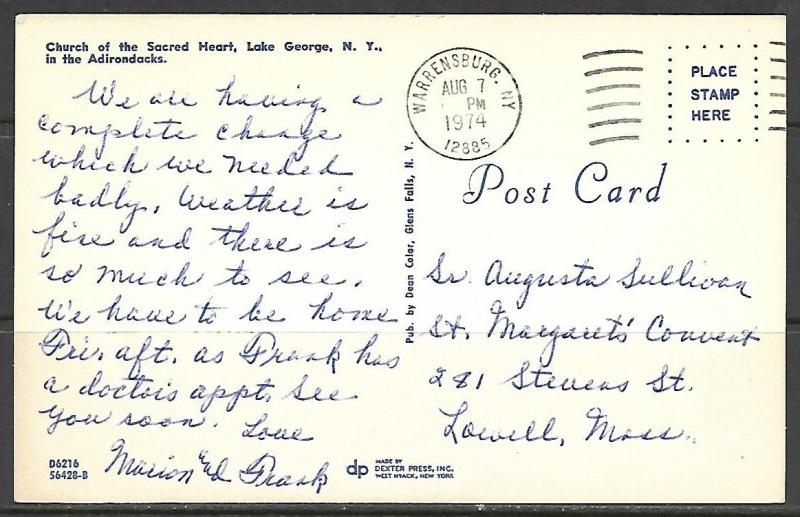 Church of the Sacred Heart, Lake George, N. Y.,
in the Adirondacks.
We are having a
complete change
which we needed
badly. Weather is
fine and there is
so much to see.
We have to be home
Fri. aft. as Frank has
a doctor's appt. See
you soon. Love
Marion and Frank
D6216
56428-B
Pub. by Dean Color, Glens Falls, N. Y.
dp
MADE BY
DEXTER PRESS, INC.
WEST NYACK, NEW YORK
WARRENSBURG, NY
AUG 7
PM
1974
12885
PLACE
STAMP
HERE
Post Card
Sr. Augusta Sullivan
St. Margaret's Convent
281 Stevens St.
Lowell, Mass.